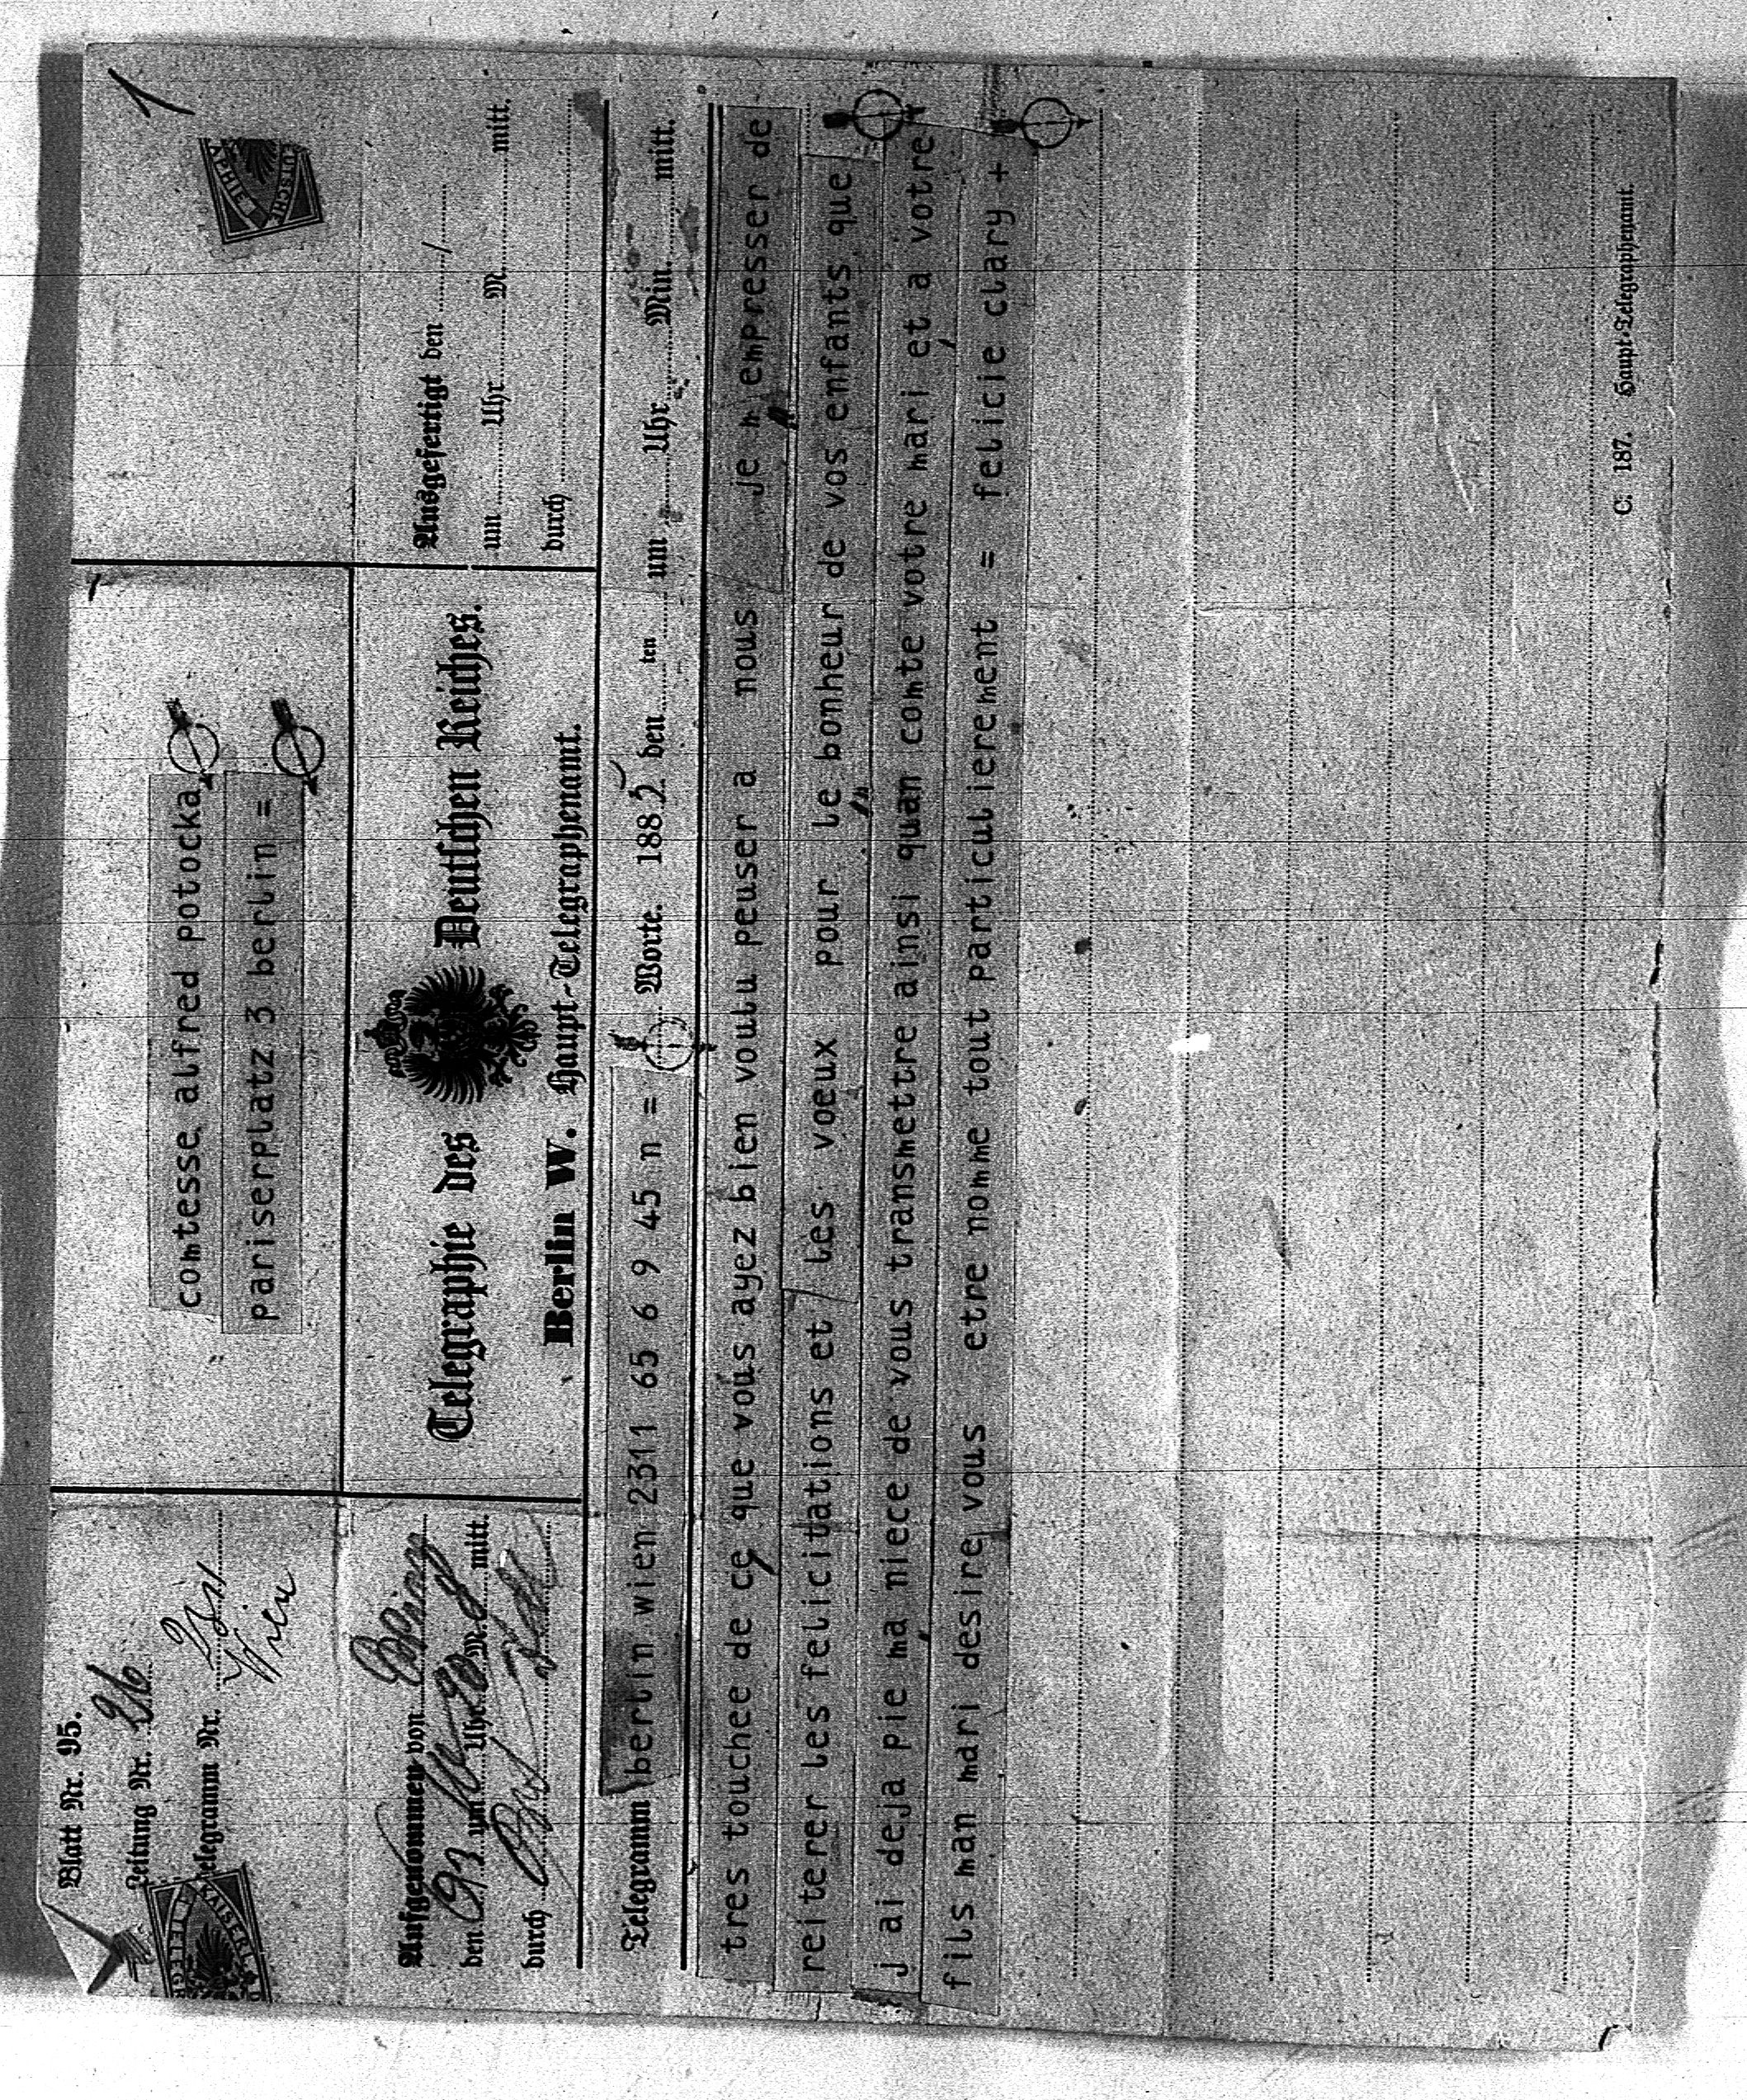 Blatt Nr. 95.
Leitung Nr. 26
Telegramm Nr.
Wien
comtesse alfred potocka
pariserplatz 3 berlin =
Aufgenommen von
den 9/3 um Uhr M. mitt.
durch
Telegraphie des Deutschen Reiches.
Berlin W. Haupt-Telegraphenamt.
Ausgefertigt den /
um Uhr M. mitt.
durch
Telegramm berlin wien 2311 65 6 9 45 n = Worte. 1885 den ten um Uhr Min. mitt.
tres touchee de ce que vous ayez bien voulu peuser a nous je m empresser de
reiterer les felicitations et les voeux pour le bonheur de vos enfants que
j ai deja pie ma niece de vous transmettre ainsi quan comte votre mari et a votre
fils man mari desire vous etre nomme tout particulierement = felicie clary +
C. 187. Haupt-Telegraphenamt.